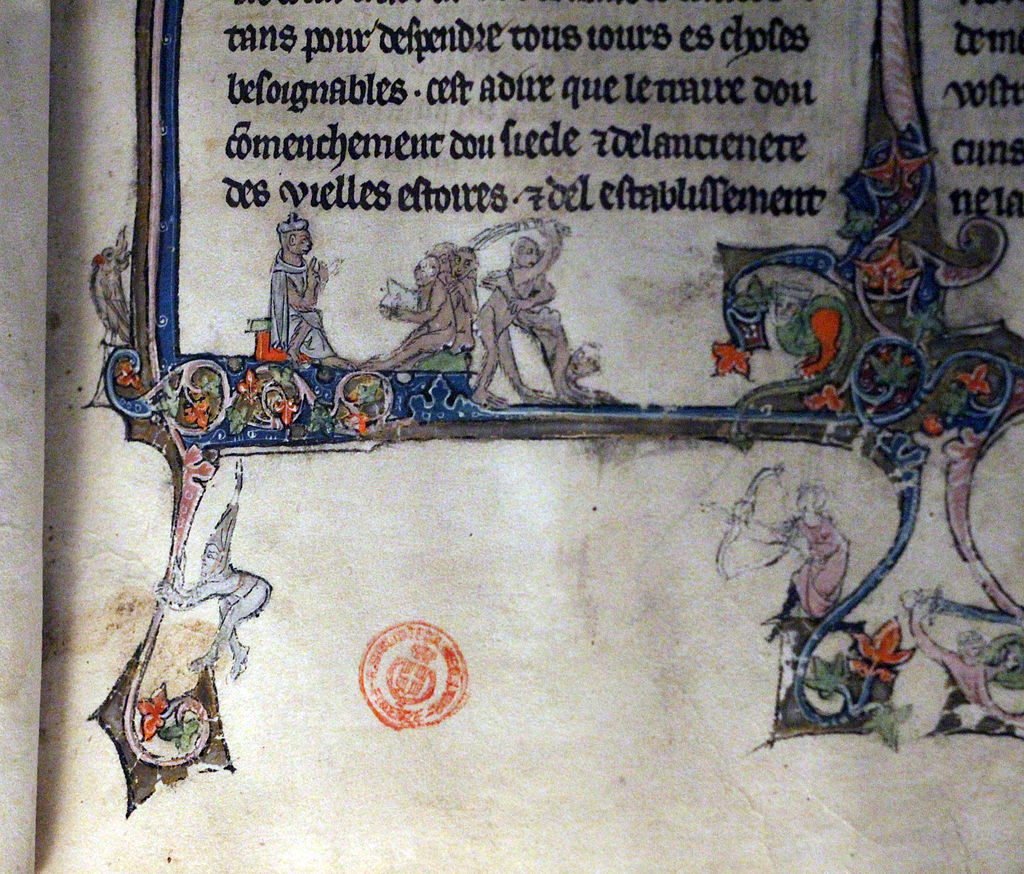 tans pour despendre tous iours es choses
besoignables · cest adire que le traire dou
cōmenchement dou siecle ⁊ delancienete
des vielles estoires · ⁊ del establissement
de
vost
cuns
ne la